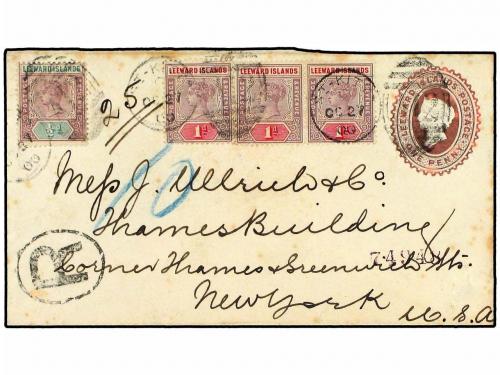 LEEWARD ISLANDS LEEWARD ISLANDS LEEWARD ISLANDS LEEWARD ISLANDS
1d 1d
OC 27
00
LEEWARD ISLANDS POSTAGE
ONE PENNY
25
10
Messrs J. Ullrich & Co.
Thames Building
Corner Thames & Greenwich Sts.
New York
U.S.A
R